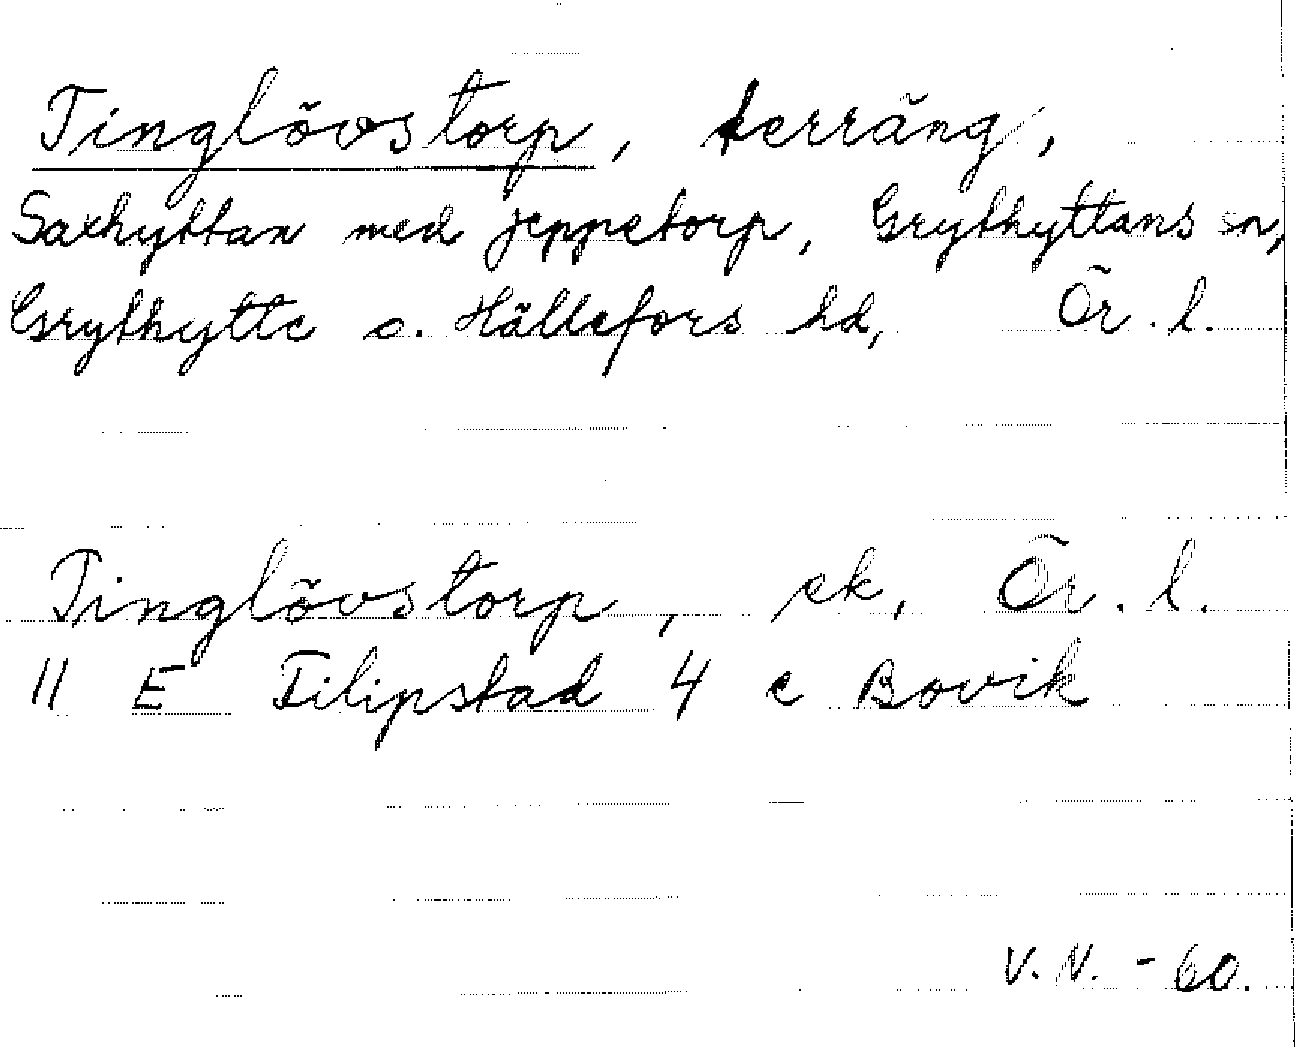 Tinglövstorp, terräng,
Saxhyttan med Jeppetorp, Grythyttans sn,
Grythytte o. Hällefors hd, Ör. l.
Tinglövstorp, ek, Ör. l.
11 E Filipstad 4 c Bovik
V. N. - 60.